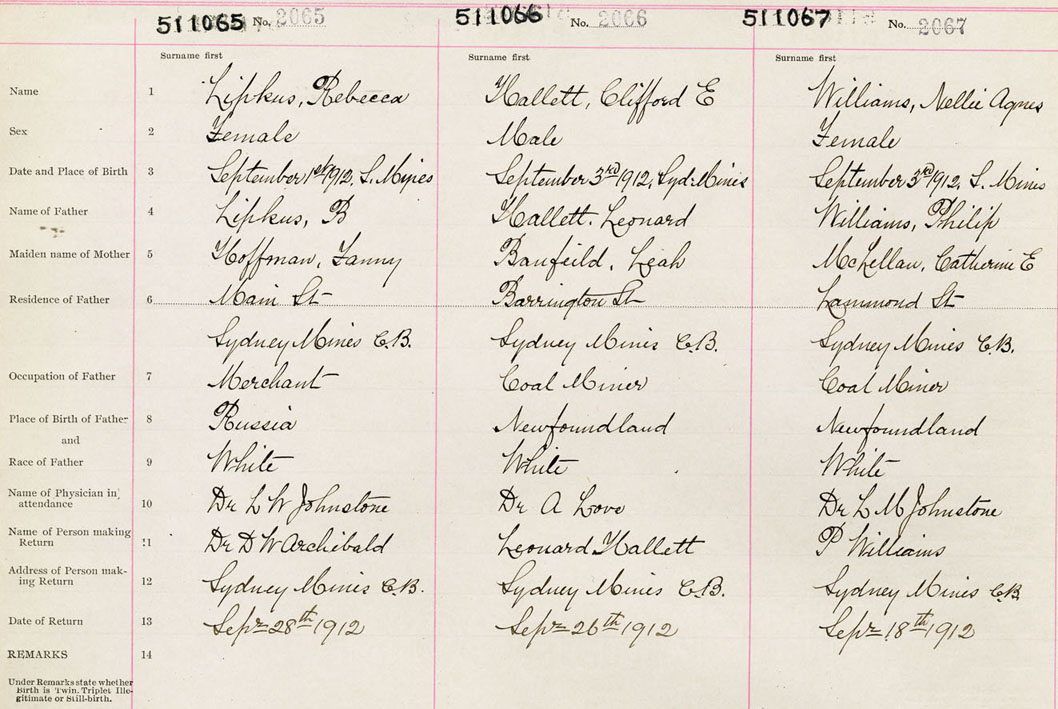 511065 No. 2065 511066 No. 2066 511067 No. 2067
Surname first Surname first Surname first
Name 1 Lipkus, Rebecca Hallett, Clifford E Williams, Nellie Agnes
Sex 2 Female Male Female
Date and Place of Birth 3 September 1st 1912, S. Mines September 3rd 1912, Syd. Mines September 3rd 1912, S. Mines
Name of Father 4 Lipkus, B Hallett. Leonard Williams, Philip
Maiden name of Mother 5 Hoffman, Fanny Banfeild, Leah McLellan, Catherine E
Residence of Father 6 Main St Barrington St Lammond St
Sydney Mines C.B. Sydney Mines C.B. Sydney Mines C.B.
Occupation of Father 7 Merchant Coal Miner Coal Miner
Place of Birth of Father 8 Russia Newfoundland Newfoundland
and
Race of Father 9 White White White
Name of Physician in attendance 10 Dr L W Johnstone Dr A Love Dr L M Johnstone
Name of Person making Return 11 Dr D W Archibald Leonard Hallett P Williams
Address of Person making Return 12 Sydney Mines C.B. Sydney Mines C.B. Sydney Mines C.B.
Date of Return 13 Sepr 28th 1912 Sepr 26th 1912 Sepr 18th 1912
REMARKS 14
Under Remarks state whether
Birth is Twin, Triplet Ille-
gitimate or Still-birth.